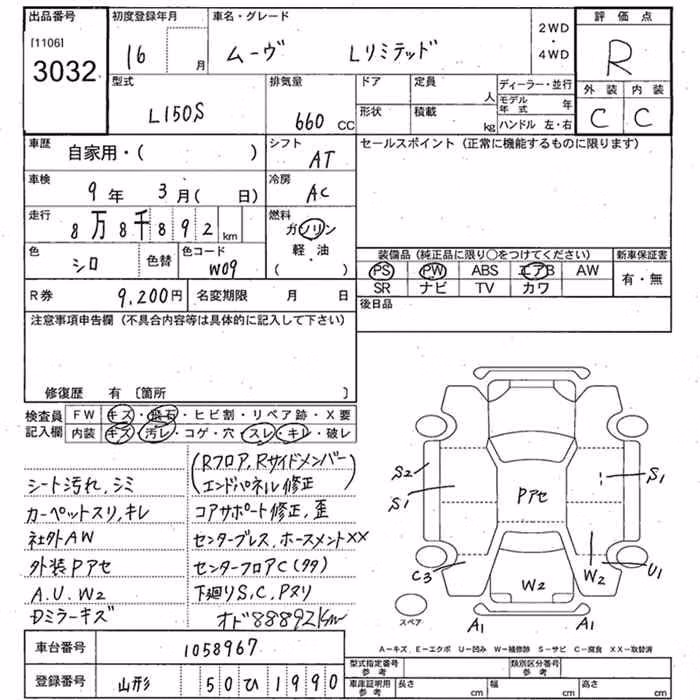 出品番号 初度登録年月 車名・グレード 2WD・4WD 評価点
[1106]
3032 16 月 ムーヴ Lリミテッド R
型式 排気量 ドア 定員 人 ディーラー・並行 外装 内装
L150S 660 CC 形状 積載 kg モデル年式 年 C C
ハンドル 左・右
車歴 自家用・( ) シフト AT セールスポイント(正常に機能するものに限ります)
車検 9年 3月( 日) 冷房 AC
走行 8万8千892 km 燃料 ガソリン
軽・油
( )
色 シロ 色替 色コード W09
装備品(純正品に限り○をつけてください) 新車保証書
PS PW ABS エアB AW 有・無
SR ナビ TV カワ
R券 9,200円 名変期限 月 日 後日品
注意事項申告欄(不具合内容等は具体的に記入して下さい)
修復歴 有〔箇所 〕
検査員記入欄 FW キズ・飛石・ヒビ割・リペア跡・X要
内装 キズ・汚レ・コゲ・穴・スレ・キレ・破レ
(Rフロア,Rサイドメンバー
エンドパネル修正)
シート汚れ,シミ
カーペットスリ,キレ コアサポート修正,歪
社外AW センターブレス,ホースメントXX
外装Pアセ センターフロアC(タタ)
A.U.W2 下廻りS,C,Pヌリ
Dミラーキズ オド88892km
S2 S1 Pアセ S1
C3 W2 W2 U1
スペア A1 A1
A−キズ,E−エクボ U−凹み W−補修跡 S−サビ C−腐食 XX−取替済
車台番号 1058967
登録番号 山形 50ひ1990
型式指定番号 参考 類別区分番号 参考
車庫証明用 参考 長さ cm 幅 cm 高さ cm